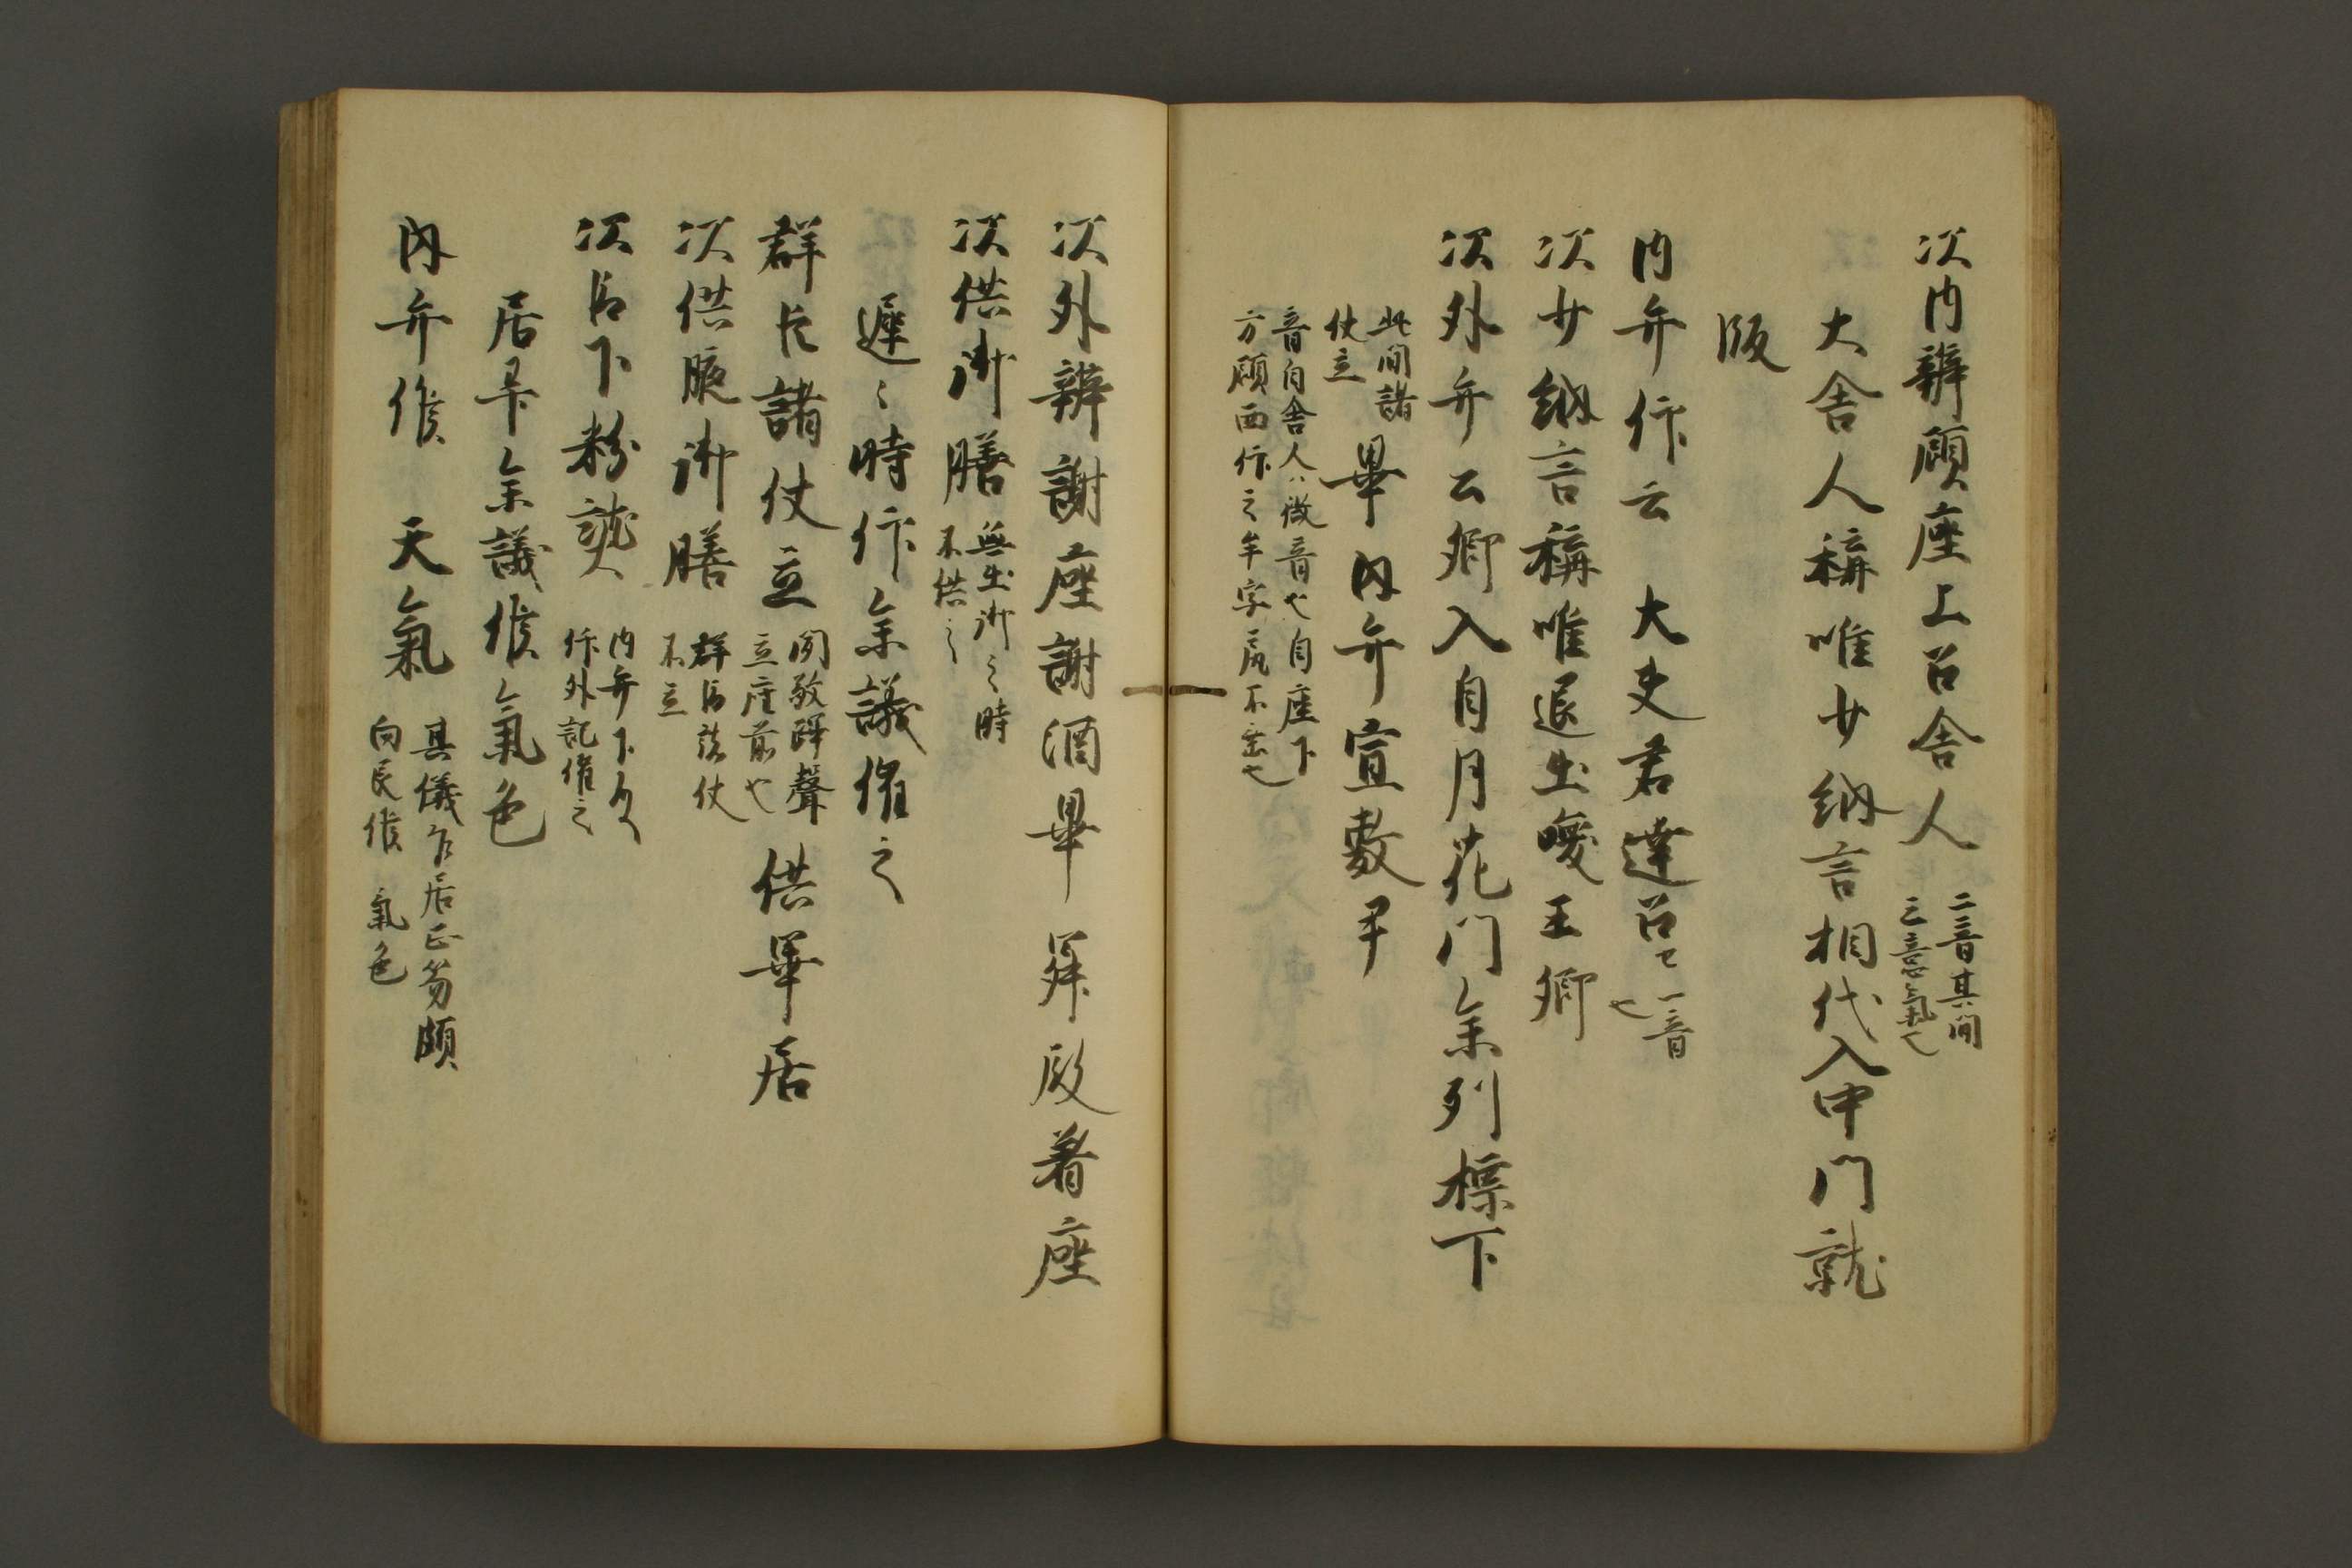 次内辨顧座上召舎人 二音其間
三音氣也
大舎人稱唯少納言相代入中門就
版
内弁仰云 大夫君達召セ 一音
也
次少納言稱唯退出喚王卿
次外弁公卿入自月花门参列標下
此間諸
仗立 畢内弁宣敷尹
音自舎人ハ微音也自座下
方顧西仰之尹字尻不出也
次外辨謝座謝酒畢昇殿着座
次供御膳 無出御之時
不供之
遅々時仰参議催之
群臣諸仗立 聞警蹕聲
立座前也 供畢居
次供腋御膳 群臣諸仗
不立
次臣下粉熟 内弁下久
仰外記催之
居畢参議候氣色
内弁候 天氣 其儀乍居正笏頗
向艮候 氣色